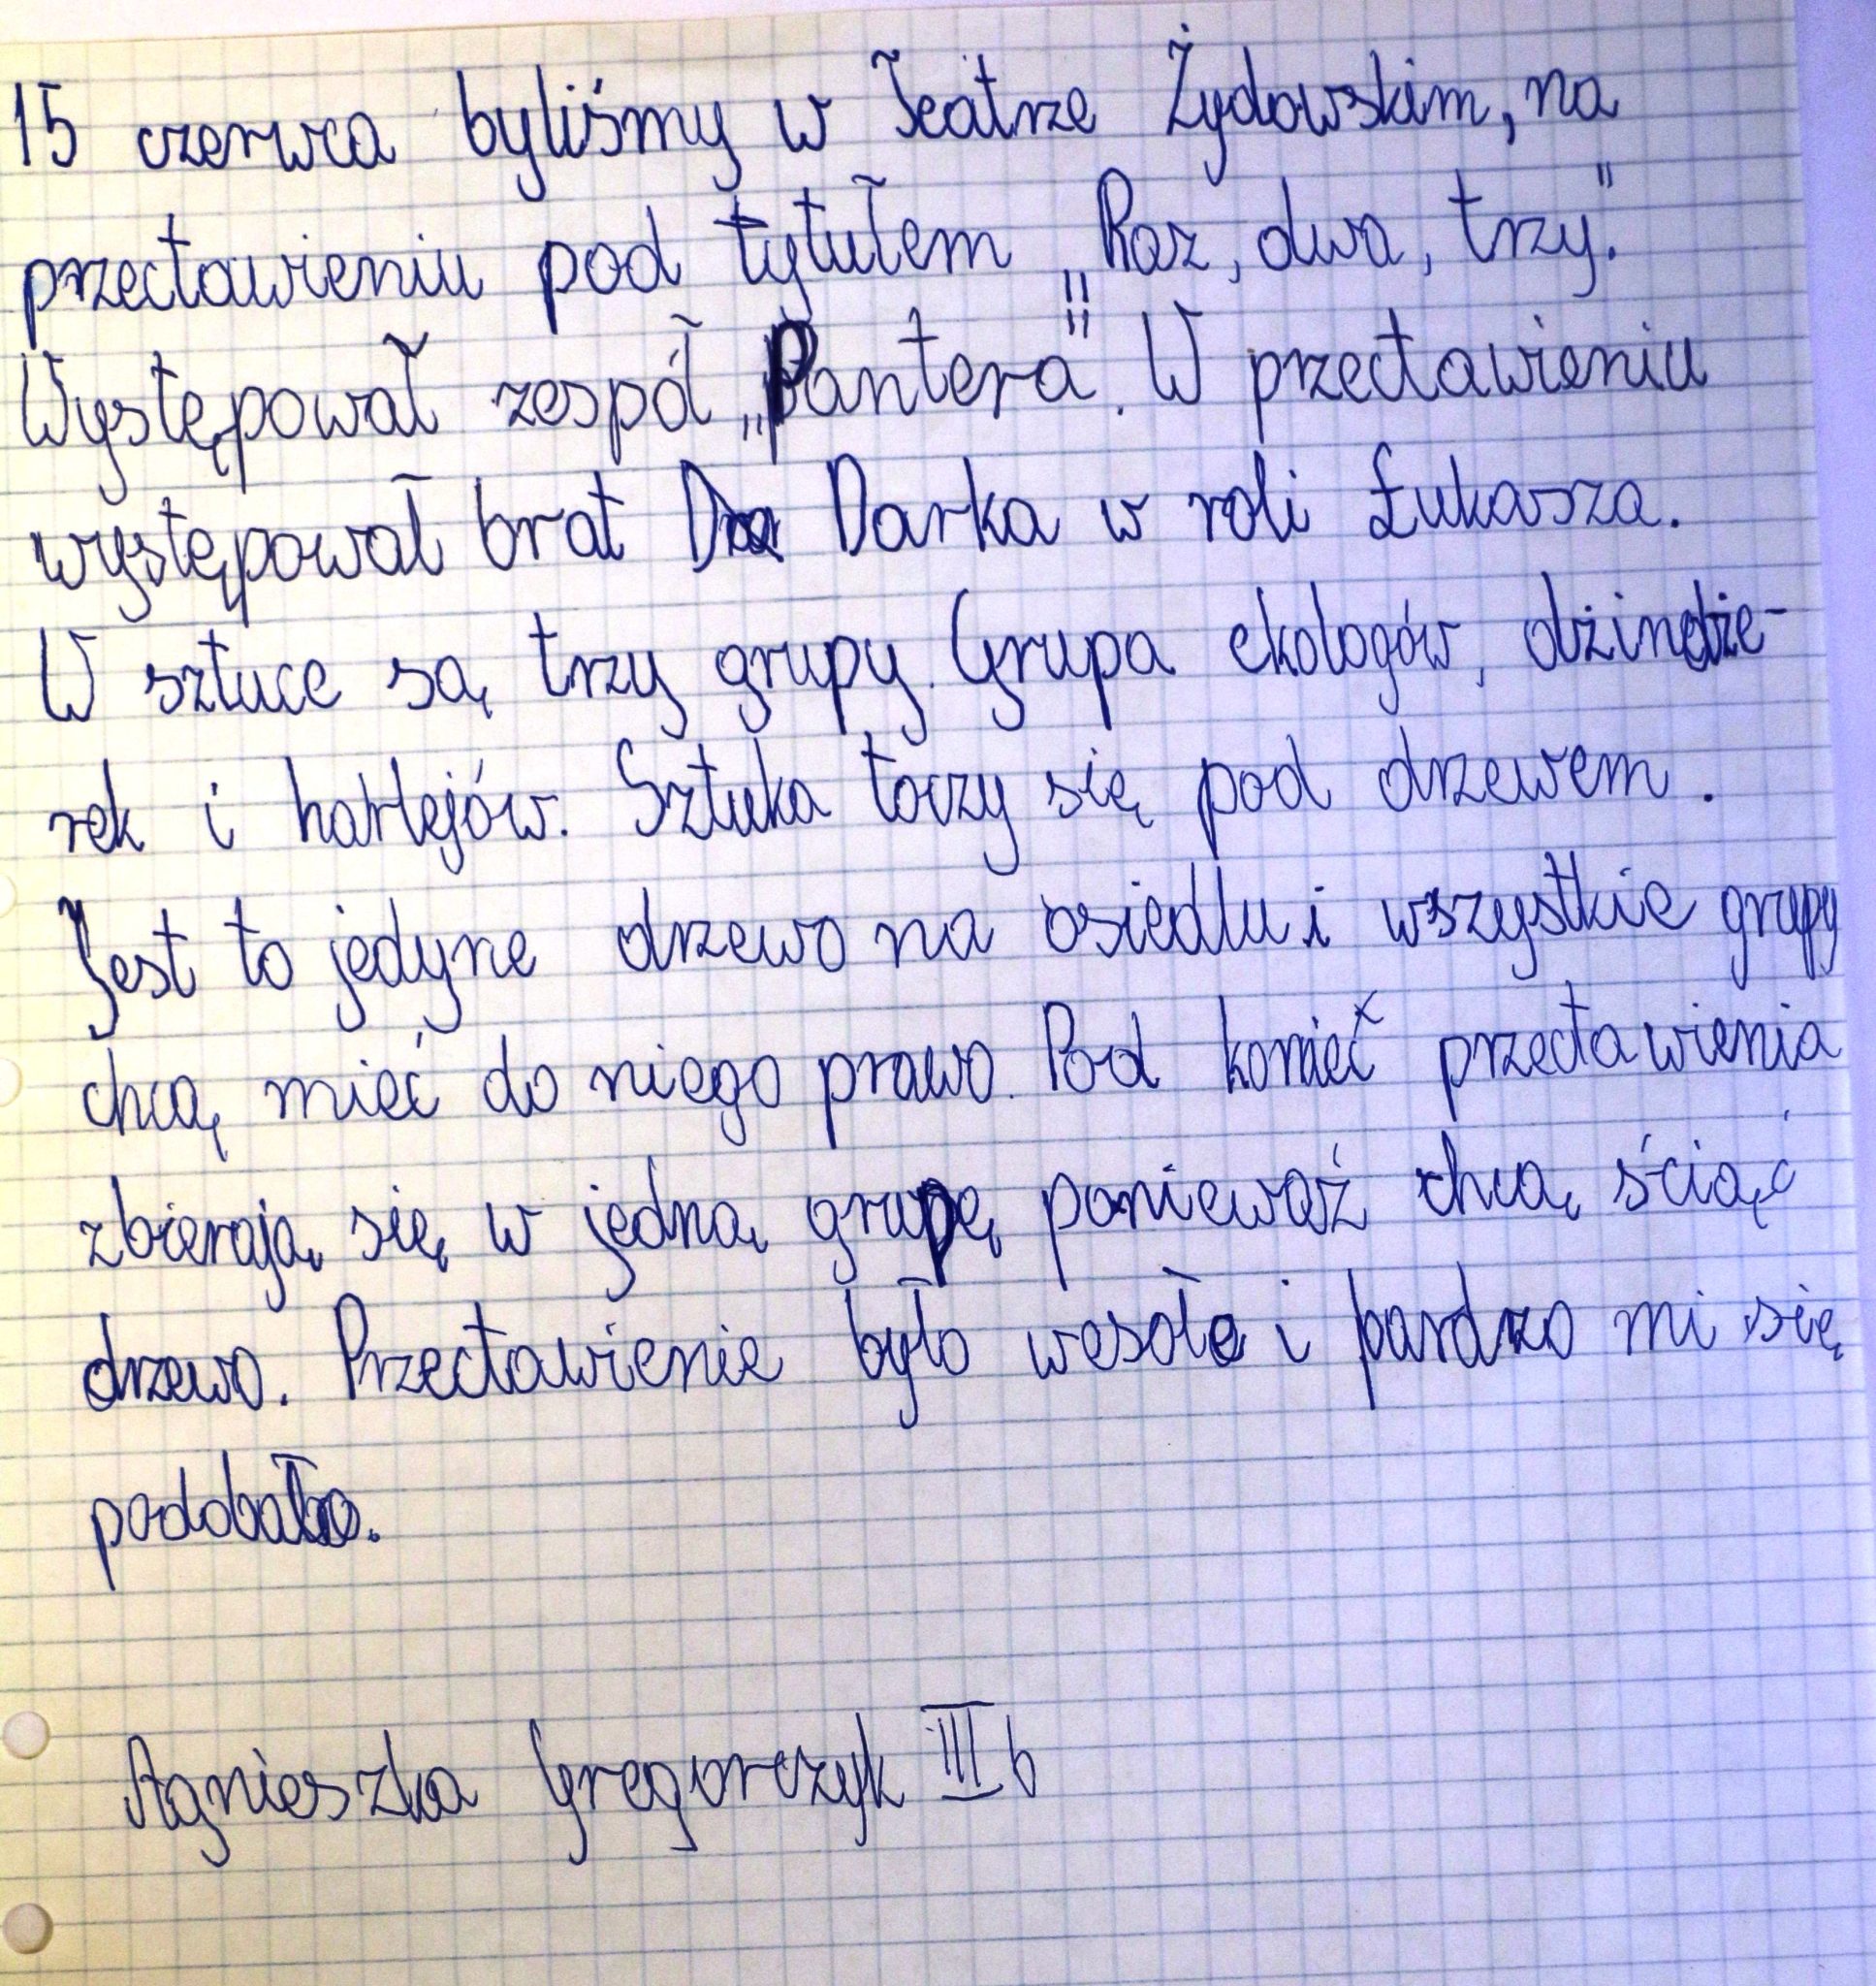 15 czerwca byliśmy w Teatrze Żydowskim, na
przectawieniu pod tytułem „Raz, dwa, trzy."
Występował zespół „Pantera". W przectawieniu
występował brat Darka w roli Łukasza.
W sztuce są trzy grupy. Grupa ekologów, dżindże-
rek i harlejów. Sztuka toczy się pod drzewem.
Jest to jedyne drzewo na osiedlu i wszystkie grupy
chcą mieć do niego prawo. Pod koniec przectawienia
zbierają się w jedną grupę ponieważ chcą ściąć
drzewo. Przectawienie było wesołe i bardzo mi się
podobało.
Agnieszka Gregorczyk III b